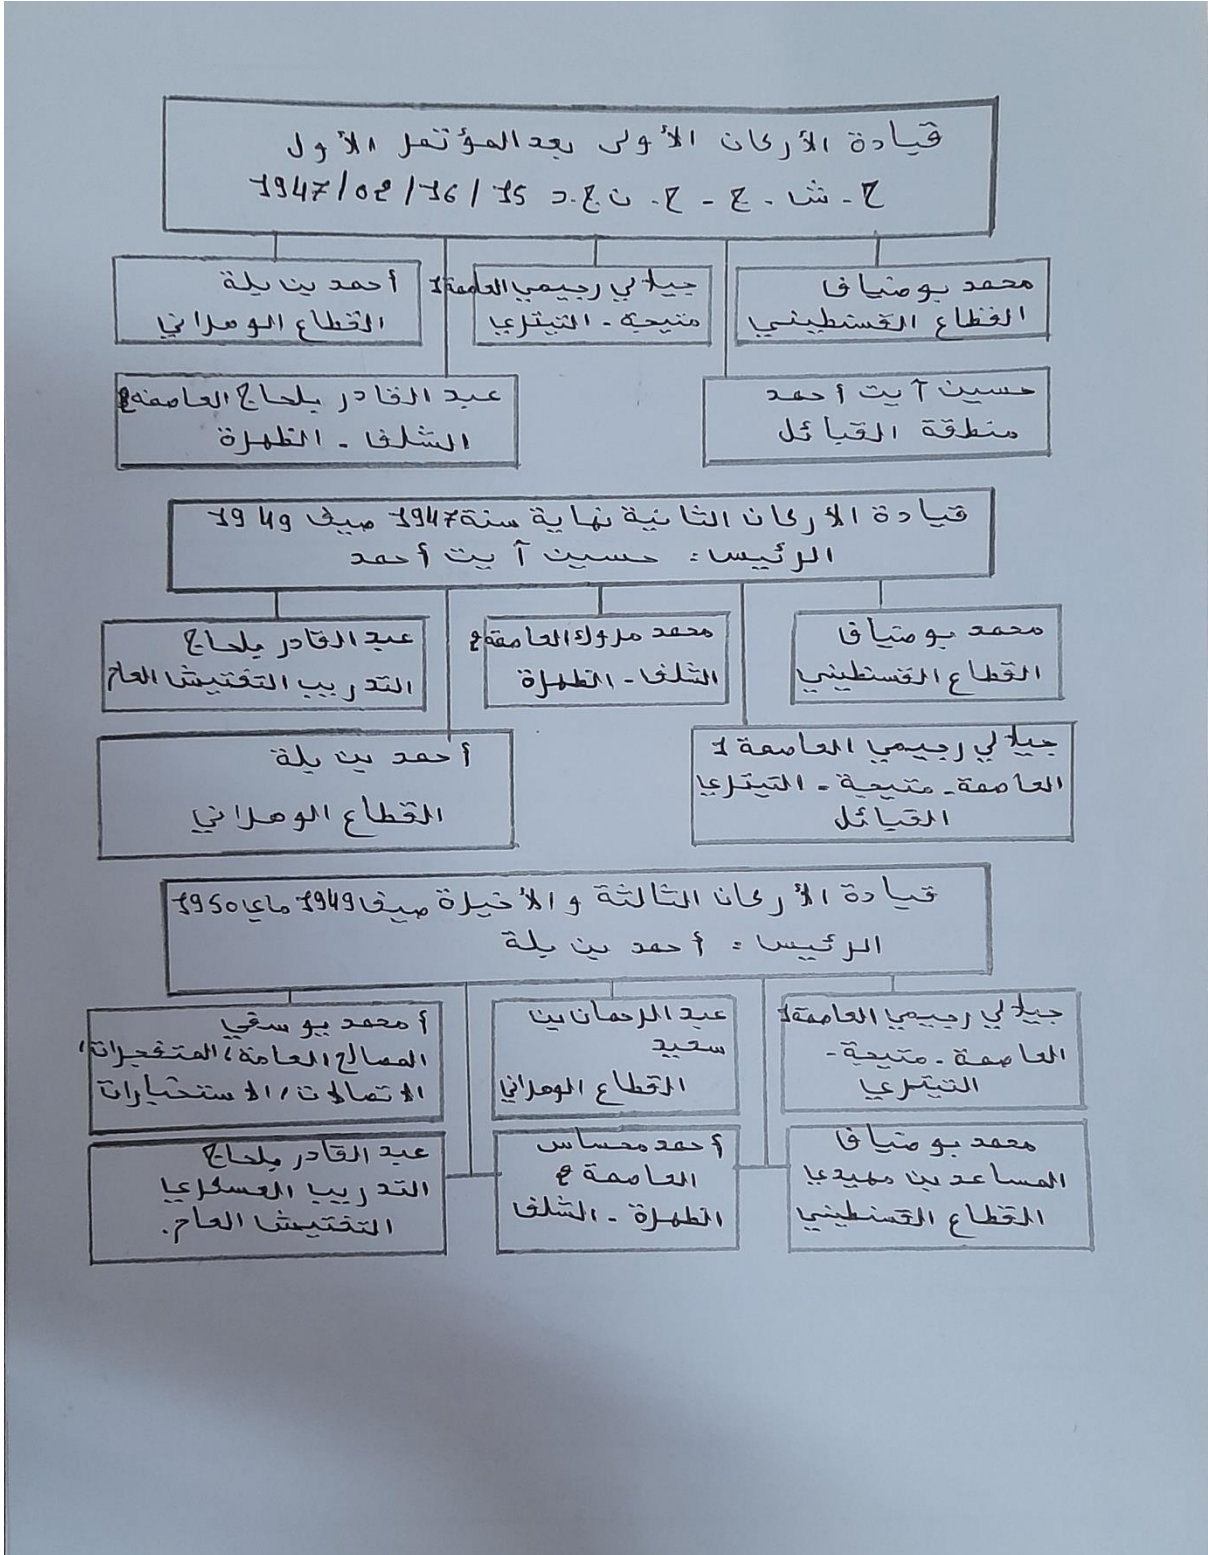 قيادة الأركان الأولى بعد المؤتمر الأول
ح - ش . ج - ح . ن ج . د 15 / 16 / 02 / 1947
محمد بوضياف
القطاع القسنطيني
جيلالي رجيمي العاصمة 1
متيجة - التيتري
أحمد بن بلة
القطاع الوهراني
حسين آيت أحمد
منطقة القبائل
عبد القادر بلحاج العاصمة 2
الشلف - الظهرة
قيادة الاركان الثانية نهاية سنة 1947 صيف 1949
الرئيس : حسين آيت أحمد
محمد بوضياف
القطاع القسنطيني
محمد مروك العاصمة 2
الشلف - الظهرة
عبد القادر بلحاج
التدريب التفتيش العام
جيلالي رجيمي العاصمة 1
العاصمة - متيجة - التيتري
القبائل
أحمد بن بلة
القطاع الوهراني
قيادة الأركان الثالثة و الأخيرة صيف 1949 ماي 1950
الرئيس : أحمد بن بلة
جيلالي رجيمي العاصمة 1
العاصمة - متيجة -
التيتري
عبد الرحمان بن
سعيد
القطاع الوهراني
أ محمد يوسفي
المصالح العامة، المتفجرات،
الاتصالات، الاستخبارات
محمد بوضياف
المساعد بن مهيدي
القطاع القسنطيني
أحمد محساس
العاصمة 2
الظهرة - الشلف
عبد القادر بلحاج
التدريب العسكري
التفتيش العام.